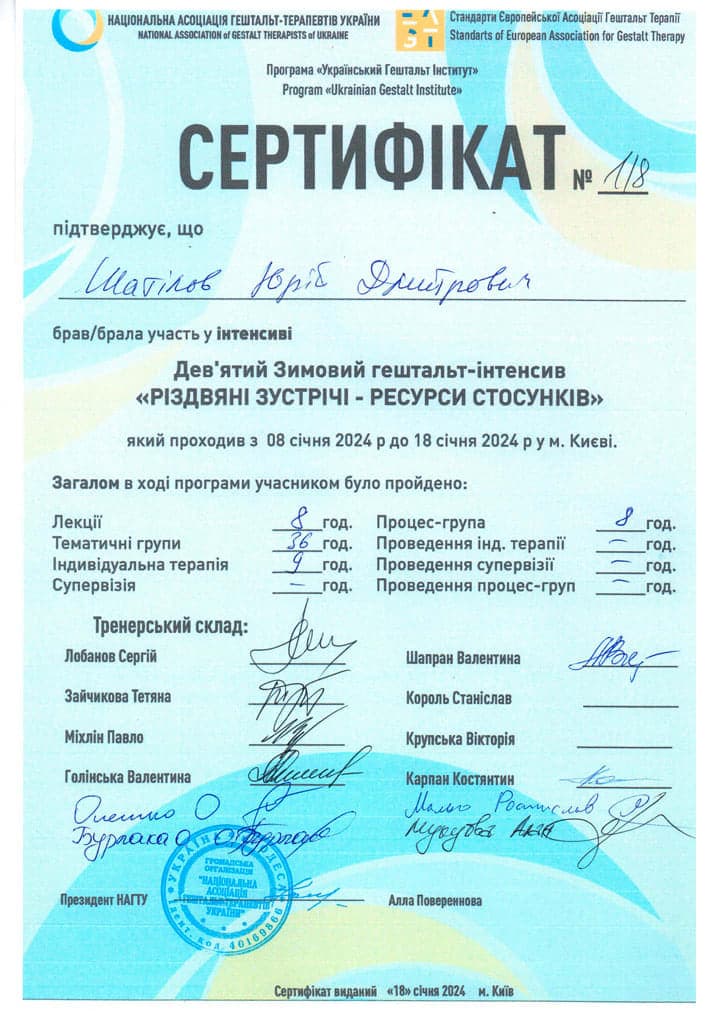 НАЦІОНАЛЬНА АСОЦІАЦІЯ ГЕШТАЛЬТ-ТЕРАПЕВТІВ УКРАЇНИ
NATIONAL ASSOCIATION of GESTALT THERAPISTS of UKRAINE
Стандарти Європейської Асоціації Гештальт Терапії
Standarts of European Association for Gestalt Therapy
Програма «Український Гештальт Інститут»
Program «Ukrainian Gestalt Institute»
СЕРТИФІКАТ № 1/8
підтверджує, що
Шатілов Юрій Дмитрович
брав/брала участь у інтенсиві
Дев'ятий Зимовий гештальт-інтенсив
«РІЗДВЯНІ ЗУСТРІЧІ - РЕСУРСИ СТОСУНКІВ»
який проходив з 08 січня 2024 р до 18 січня 2024 р у м. Києві.
Загалом в ході програми учасником було пройдено:
Лекції 8 год. Процес-група 8 год.
Тематичні групи 36 год. Проведення інд. терапії – год.
Індивідуальна терапія 9 год. Проведення супервізії – год.
Супервізія – год. Проведення процес-груп – год.
Тренерський склад:
Лобанов Сергій Шапран Валентина
Зайчикова Тетяна Король Станіслав
Міхлін Павло Крупська Вікторія
Голінська Валентина Карпан Костянтин
Олешко О Мальо Ростислав
Бурлака О
УКРАЇНА ОДЕСА
ГРОМАДСЬКА
ОРГАНІЗАЦІЯ
"НАЦІОНАЛЬНА
АСОЦІАЦІЯ
ГЕШТАЛЬТ-ТЕРАПЕВТІВ
УКРАЇНИ"
Ідент. код 40169866
Президент НАГТУ Алла Повереннова
Сертифікат виданий «18» січня 2024 м. Київ